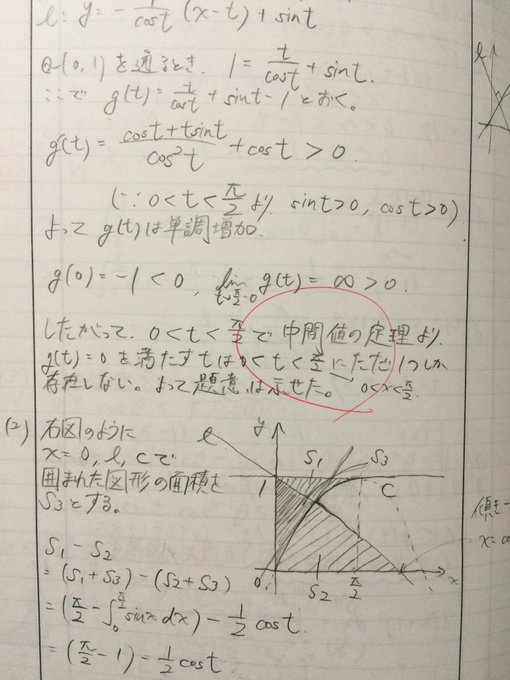 l: y = -1/cost (x-t) + sint
Q(0,1)を通るとき、1 = t/cost + sint.
ここで g(t) = t/cost + sint - 1 とおく。
g'(t) = (cost + tsint)/cos²t + cost > 0
(∵ 0<t<π/2 より sint>0, cost>0)
よって g(t)は単調増加.
g(0) = -1 < 0, lim t→π/2-0 g(t) = ∞ > 0.
したがって、0<t<π/2 で 中間値の定理より
g(t)=0 を満たすtは 0<t<π/2 にただ1つしか
存在しない。よって題意は示せた。 0<x<π/2.
(2) 右図のように
x=0, l, Cで
囲まれた図形の面積を
S3とする。
l y S1 S3
1 C
0 S2 π/2 x
傾き
S1 - S2
= (S1+S3) - (S2+S3)
= (π/2 - ∫0^π/2 sinx dx) - 1/2 cost
= (π/2 - 1) - 1/2 cost